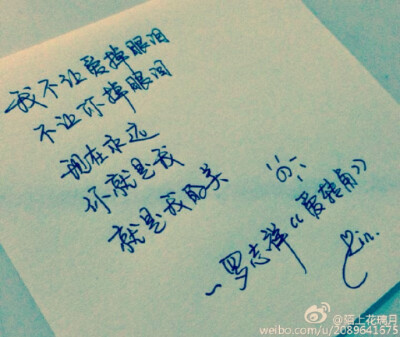 我不让爱掉眼泪
不让你掉眼泪
现在永远
你就是我
就是我的美
~罗志祥《爱转角》
@陌上花璃月
weibo.com/u/2089641575